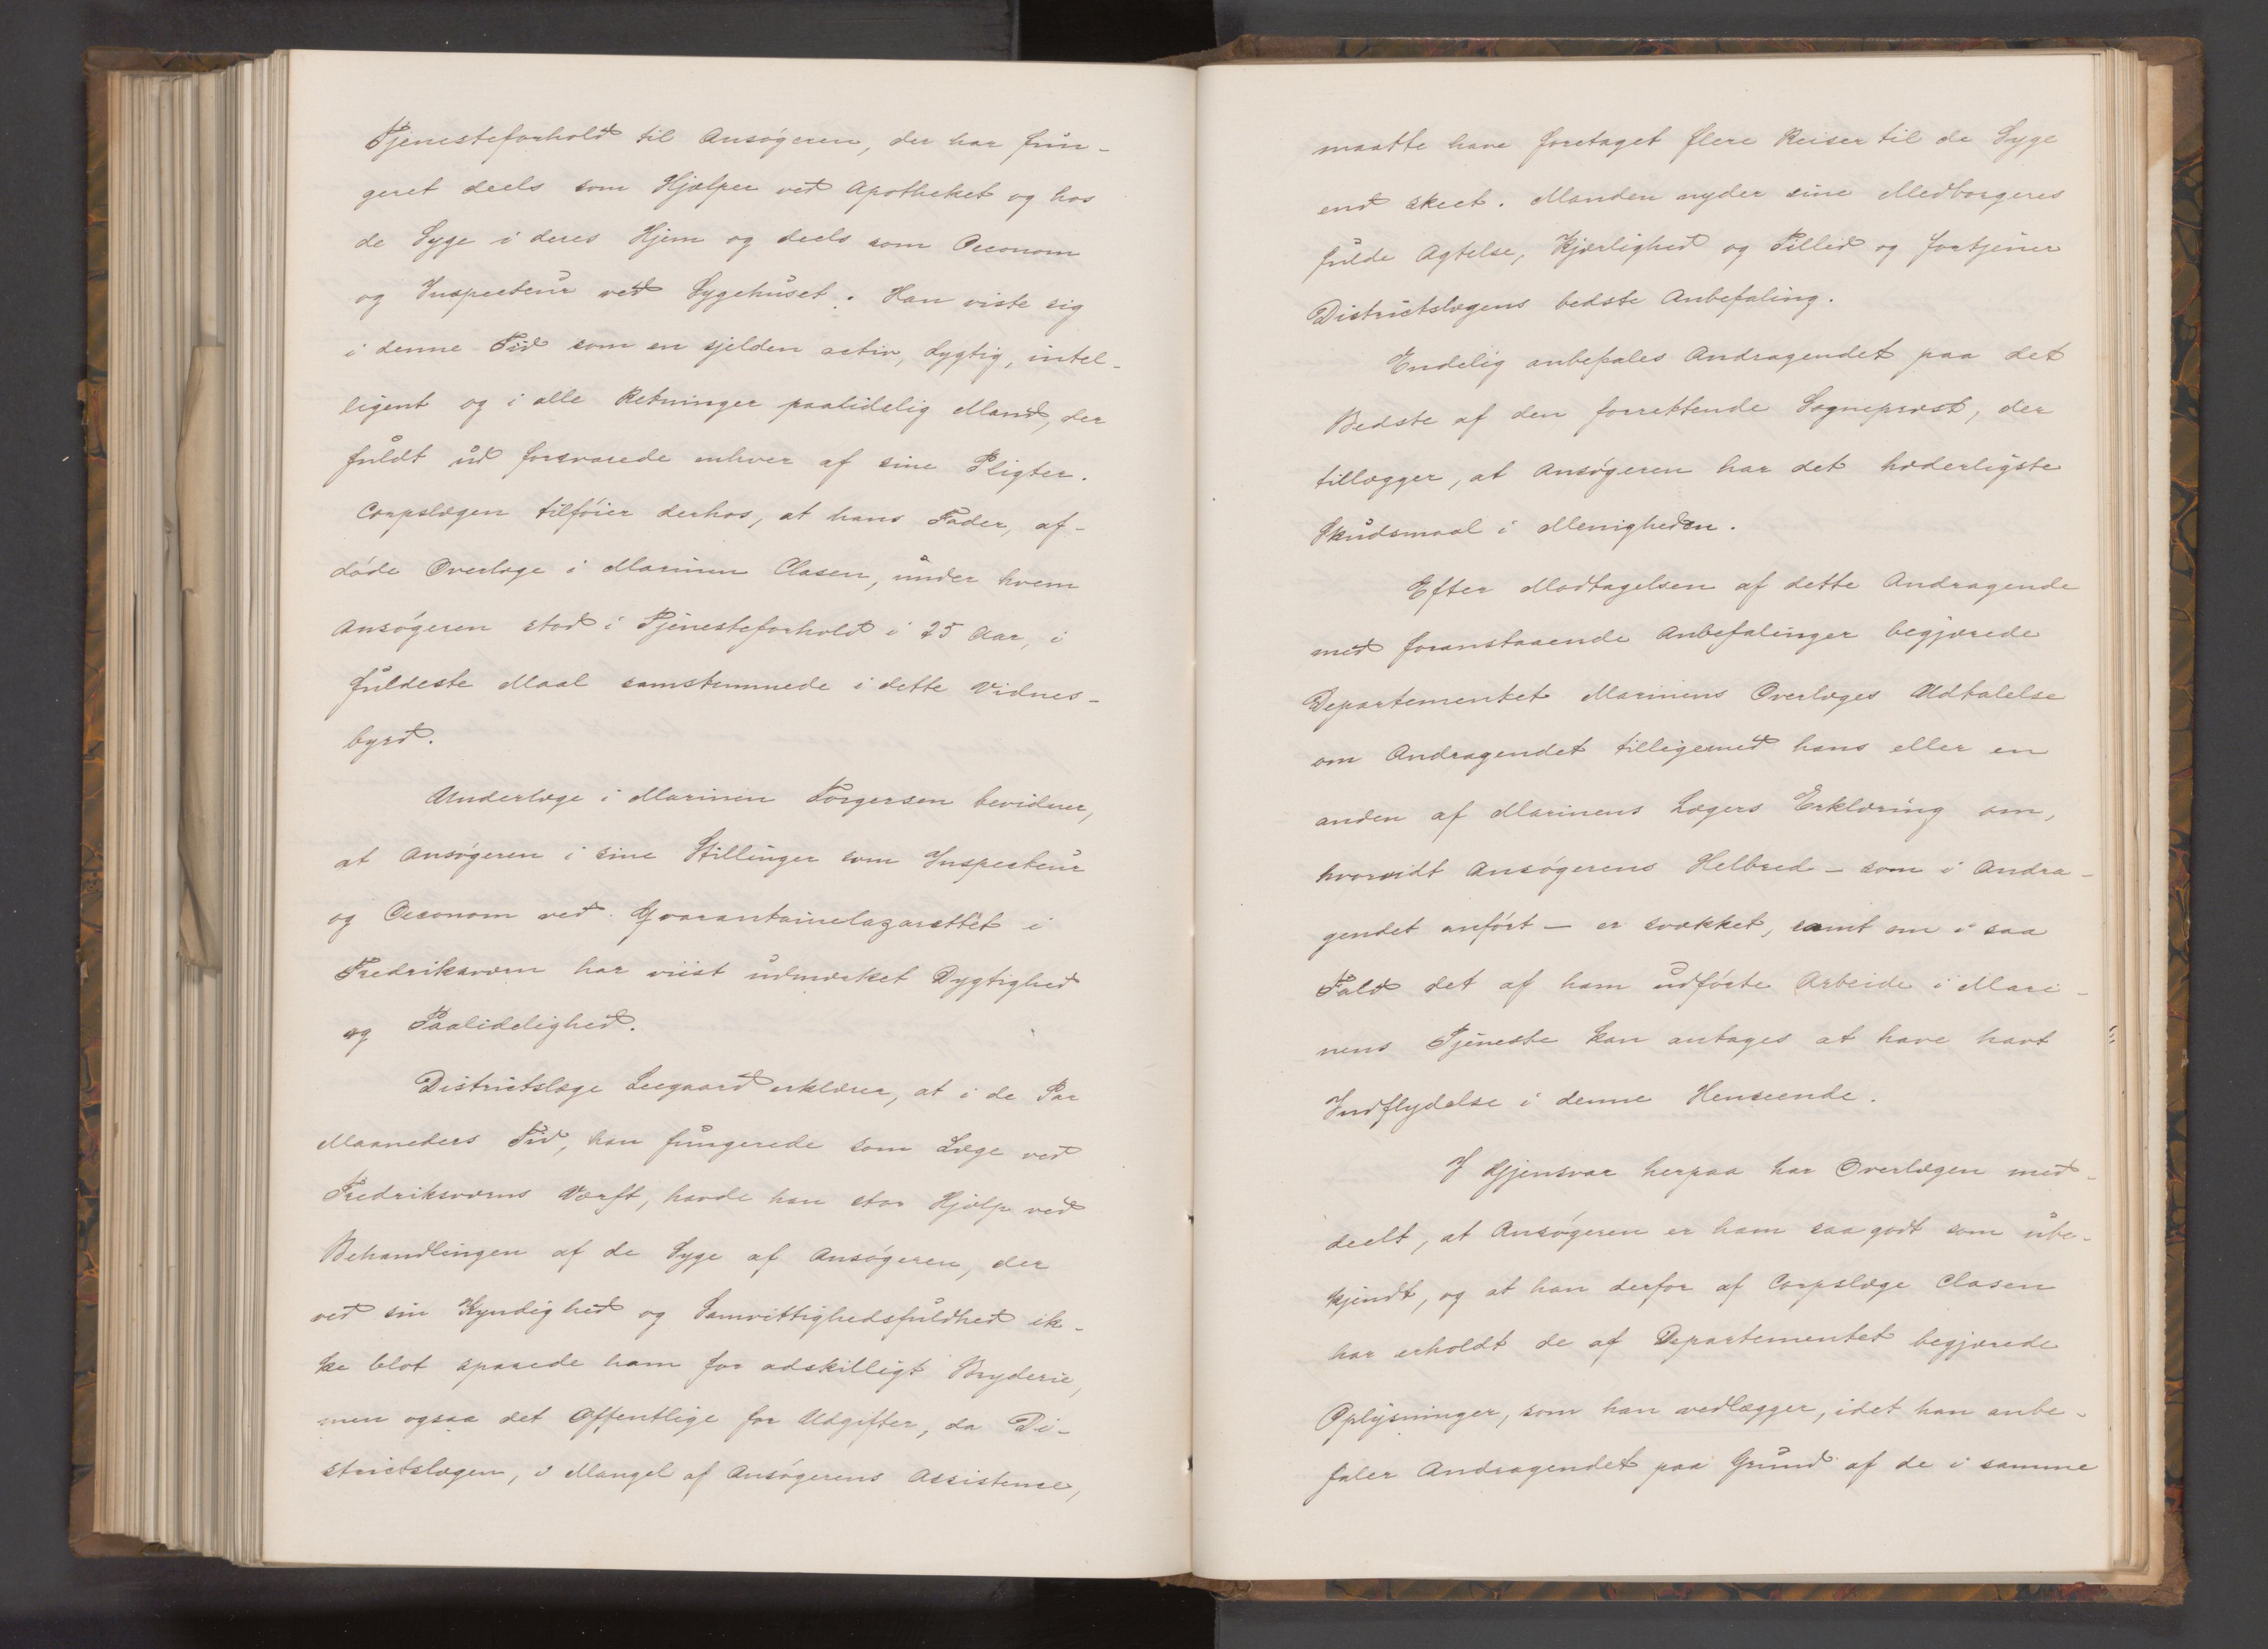 Tjenesteforhold til Ansøgeren, der har fun-
geret deels som Hjælper ved Apotheket og hos
de Syge i deres Hjem og deels som Oeconom
og Inspecteur ved Sygehuset. Han viste sig
i denne Tid som en sjelden activ, dygtig, intel-
ligent og i alle Retninger paalidelig Mand, der
fuldt ud forsvarede enhver af sine Pligter.
Corpslægen tilføier derhos, at hans Fader, af-
døde Overlæge i Marinen Clasen, under hvem
Ansøgeren stod i Tjenesteforhold i 25 Aar, i
fuldeste Maal samstemmede i dette Vidnes-
byrd.
Underlæge i Marinen Torgersen bevidner,
at Ansøgeren i sine Stillinger som Inspecteur
og Oeconom ved Qvarantainelazarettet i
Fredriksværn har viist udmærket Dygtighed
og Paalidelighed.
Districtslæge Leegaard erklærer, at i de Par
Maaneders Tid, han fungerede som Læge ved
Fredriksværns Værft, havde han stor Hjælp ved
Behandlingen af de Syge af Ansøgeren, der
ved sin Kyndighed og Samvittighedsfuldhed ik-
ke blot sparede ham for adskilligt Bryderie,
men ogsaa det Offentlige for Udgifter, da Di-
strictslægen, i Mangel af Ansøgerens Assistence,
maatte have foretaget flere Reiser til de Syge
end skeet. Manden nyder sine Medborgeres
fulde Agtelse, Kjærlighed og Tillid og fortjener
Districtslægens bedste Anbefaling.
Endelig anbefales Andragendet paa det
Bedste af den forrettende Sognepræst, der
tillægger, at Ansøgeren har det hæderligste
Skudsmaal i Menigheden.
Efter Modtagelsen af dette Andragende
med foranstaaende Anbefalinger begjærede
Departementet Marinens Overlæges Udtalelse
om Andragendet tilligemed hans eller en
anden af Marinens Lægers Erklæring om,
hvorvidt Ansøgerens Helbred - som i Andra-
gendet anført - er svækket, samt om i saa
Fald det af ham udførte Arbeide i Mari-
nens Tjeneste kan antages at have havt
Indflydelse i denne Henseende.
I Gjensvar herpaa har Overlægen med-
deelt, at Ansøgeren er ham saagodt som ube-
kjendt, og at han derfor af Corpslæge Clasen
har erholdt de af Departementet begjærede
Oplysninger, som han vedlægger, idet han anbe-
faler Andragendet paa Grund af de i samme